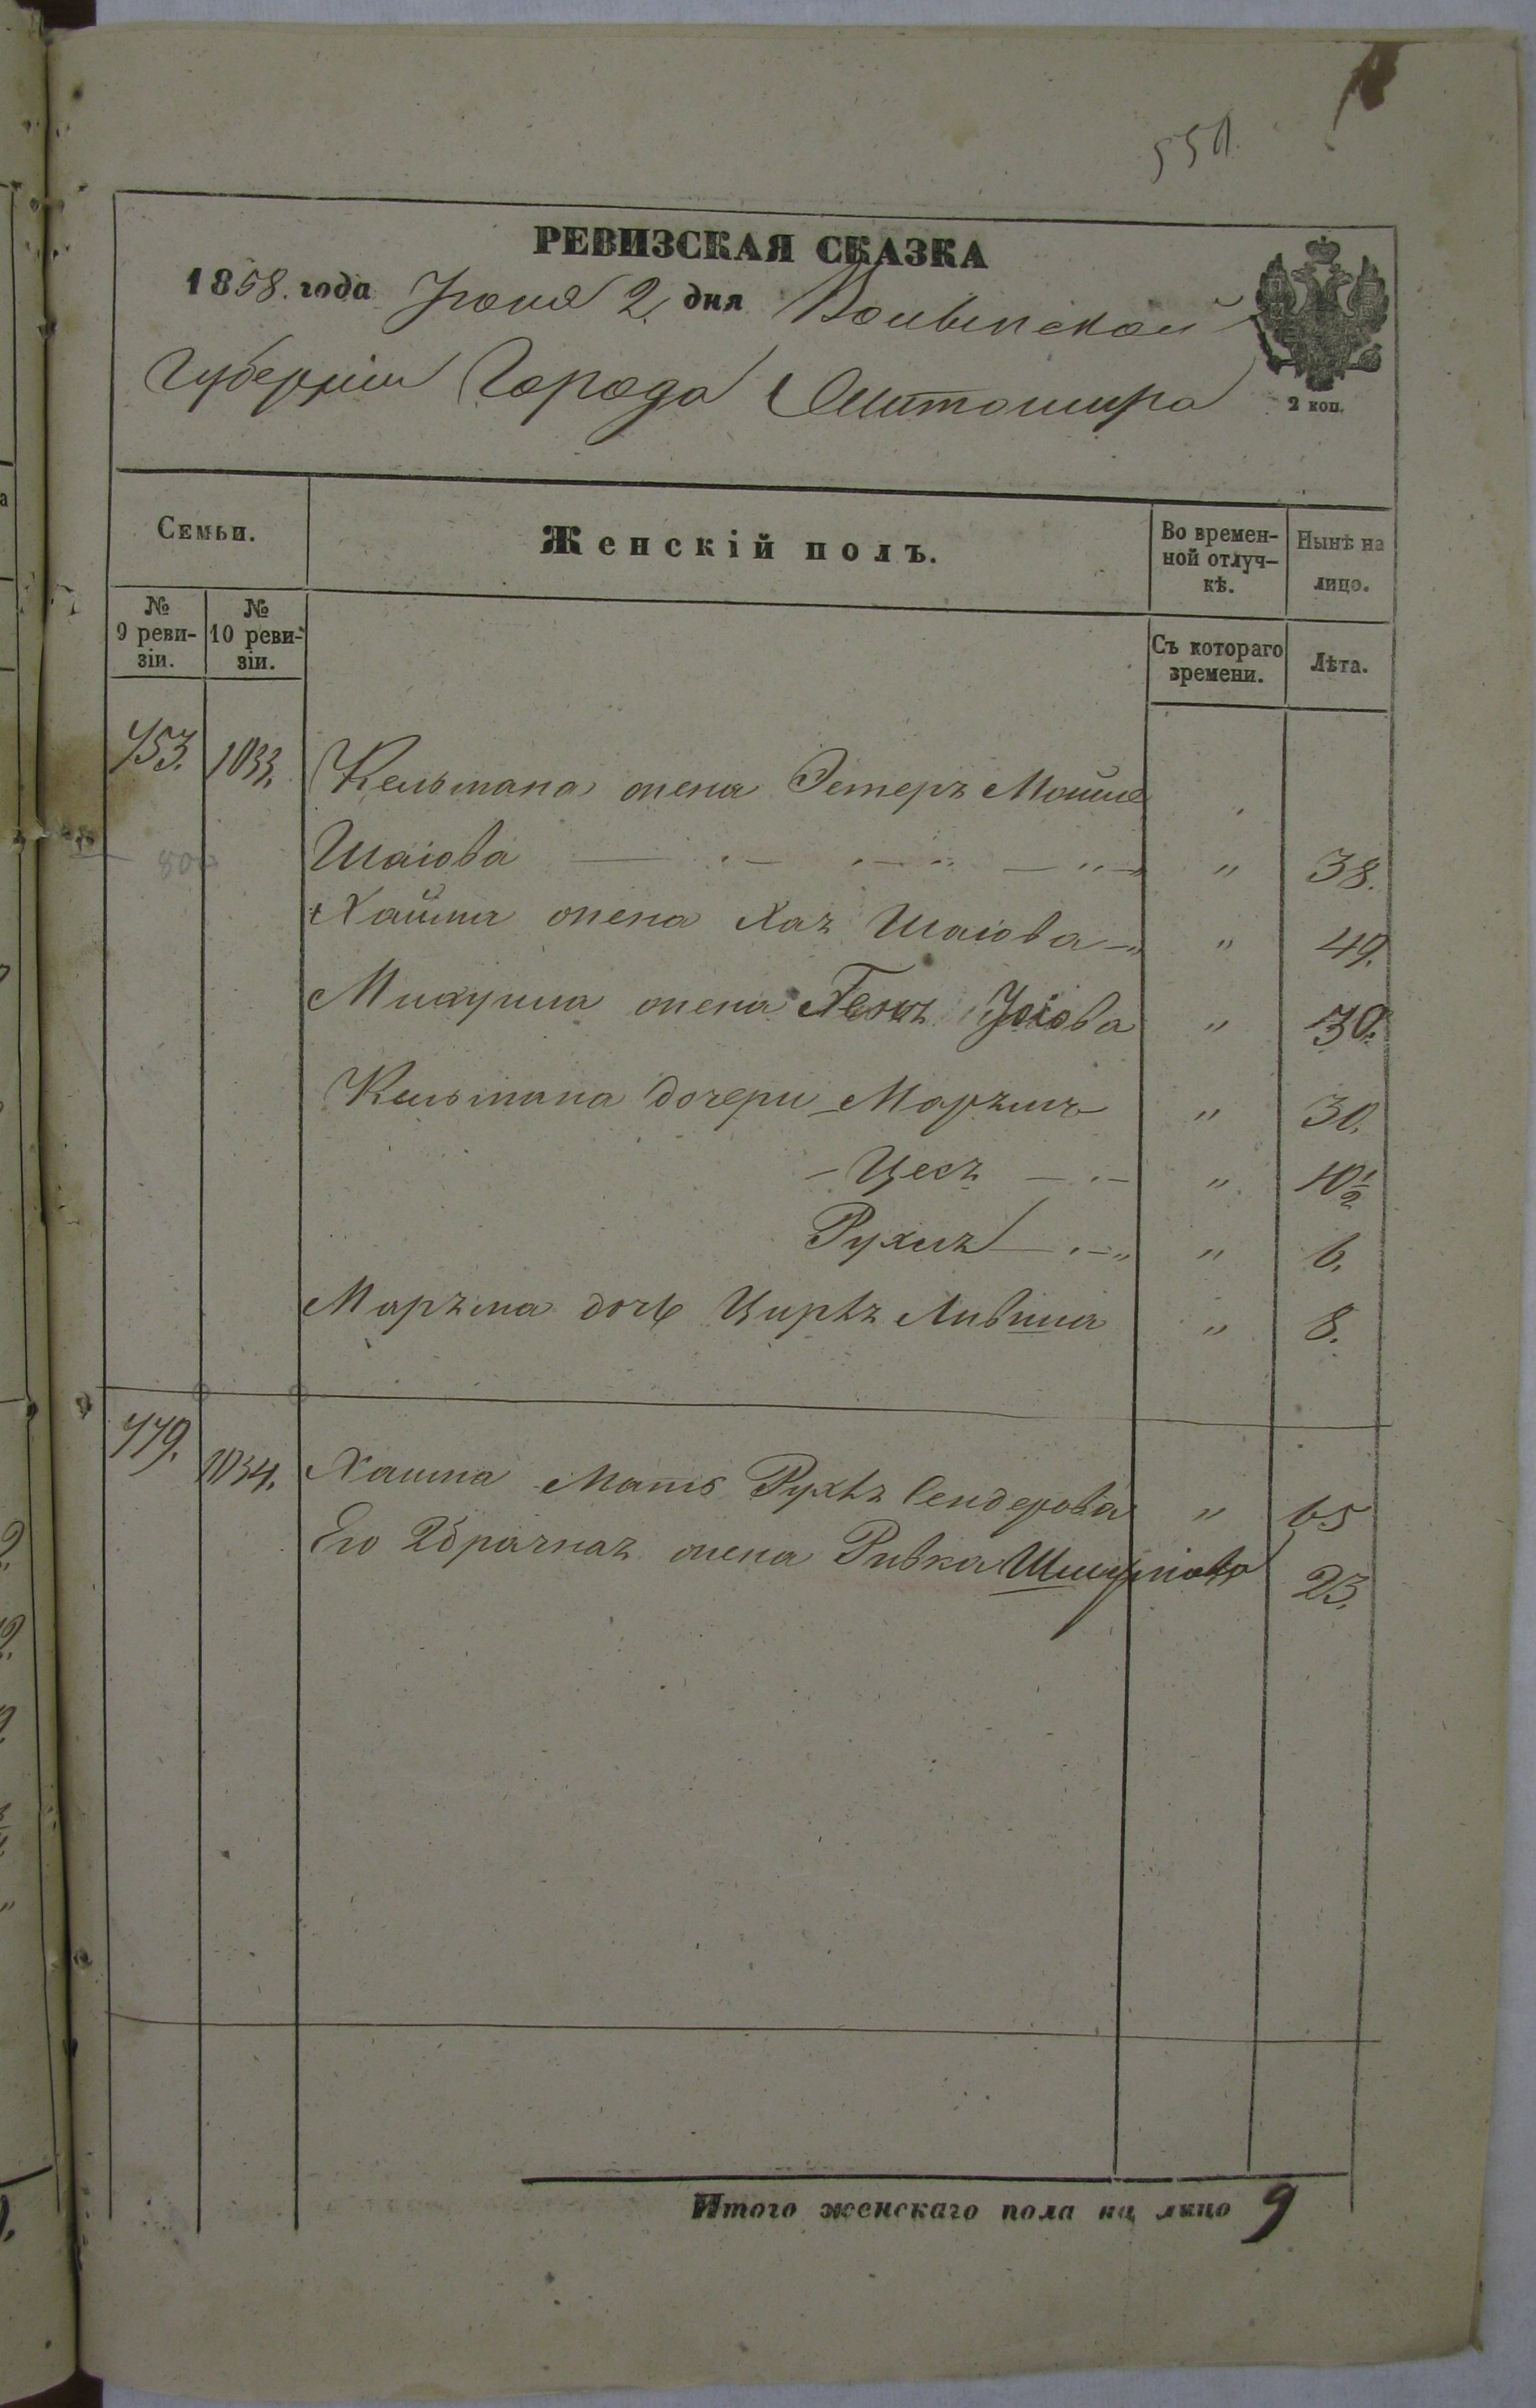 550.
РЕВИЗСКАЯ СКАЗКА
1858. года Июня 2. дня Волынской
Губерніи Города Житомира
2 коп.
Семьи.
Женскій полъ.
Во времен-
ной отлуч-
кѣ.
Нынѣ на
лицо.
№
9 реви-
зіи.
№
10 реви-
зіи.
Съ котораго
времени.
Лѣта.
753. 1033. Кельмана жена Эстеръ Мошко
Шаіова " 38.
Хаима жена Хая Шаіова " 49.
жена Геня " 30.
Кельмана дочери Марьям " 30.
Цеся " 10½
Рухля " 6.
дочь Цирля " 8.
779. 1034. Хаима Мать Рухля Сендерова " 65
Его 2 брачная жена Ривка 23.
Итого женскаго пола на лицо 9